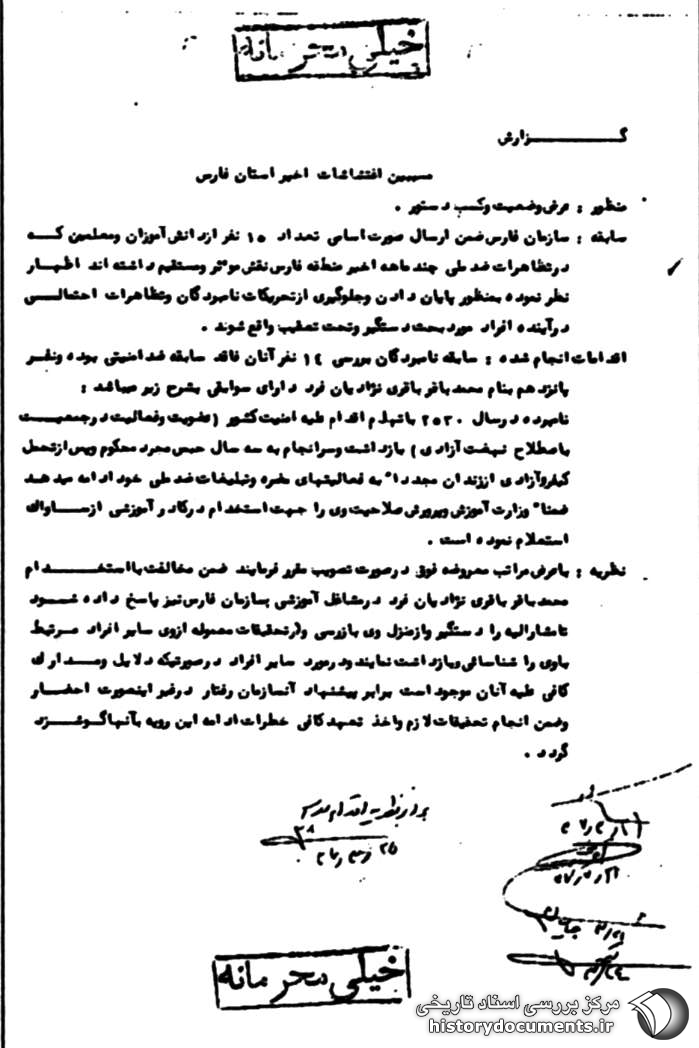 خیلی محرمانه
گزارش
مسببین اغتشاشات اخیر استان فارس
منظور : عرض وضعیت و کسب دستور .
سابقه : سازمان فارس ضمن ارسال صورت اسامی تعداد ۱۵ نفر از دانش آموزان و معلمین که
در تظاهرات ضد ملی چند ماهه اخیر منطقه فارس نقش موثر و مستقیم داشته اند اظهار
نظر نموده بمنظور پایان دادن و جلوگیری از تحریکات نامبردگان و تظاهرات احتمالی
در آینده افراد مورد بحث دستگیر و تحت تعقیب واقع شوند .
اقدامات انجام شده : سابقه نامبردگان بررسی ۱۴ نفر آنان فاقد سابقه ضد امنیتی بوده و نفر
پانزدهم بنام محمد باقر باقری نژادیان فرد دارای سوابقی بشرح زیر میباشد :
نامبرده در سال ۲۵۳۰ باتهام اقدام علیه امنیت کشور (عضویت و فعالیت در جمعیت
باصطلاح نهضت آزادی) بازداشت و سرانجام به سه سال حبس مجرد محکوم و پس از تحمل
کیفر و آزادی از زندان مجددا" به فعالیتهای مضره و تبلیغات ضد ملی خود ادامه میدهد
ضمنا" وزارت آموزش و پرورش صلاحیت وی را جهت استخدام در کادر آموزشی از ساواک
استعلام نموده است .
نظریه : باعرض مراتب معروضه فوق در صورت تصویب مقرر فرمایند ضمن مخالفت با استخدام
محمد باقر باقری نژادیان فرد در مشاغل آموزشی بسازمان فارس نیز پاسخ داده شود
تا مشارالیه را دستگیر و از منزل وی بازرسی و (در تحقیقات معموله از وی سایر افراد مرتبط
باوی را شناسائی و بازداشت نمایند و در مورد سایر افراد در صورتیکه دلایل و مدارک
کافی علیه آنان موجود است برابر پیشنهاد آنسازمان رفتار در غیر اینصورت احضار
و ضمن انجام تحقیقات لازم و اخذ تعهد کافی خطرات ادامه این رویه بآنها گوشزد
گردد .
خیلی محرمانه
مرکز بررسی اسناد تاریخی
historydocuments.ir